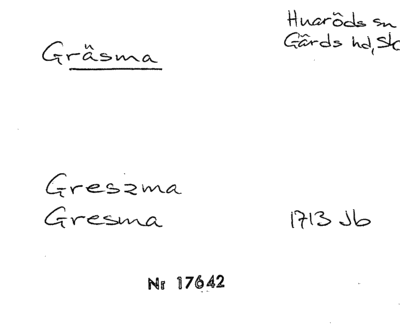 Huaröds sn
Gräsma
Gärds hd, Sk
Greszma
Gresma 1713 Jb
Nr 17642